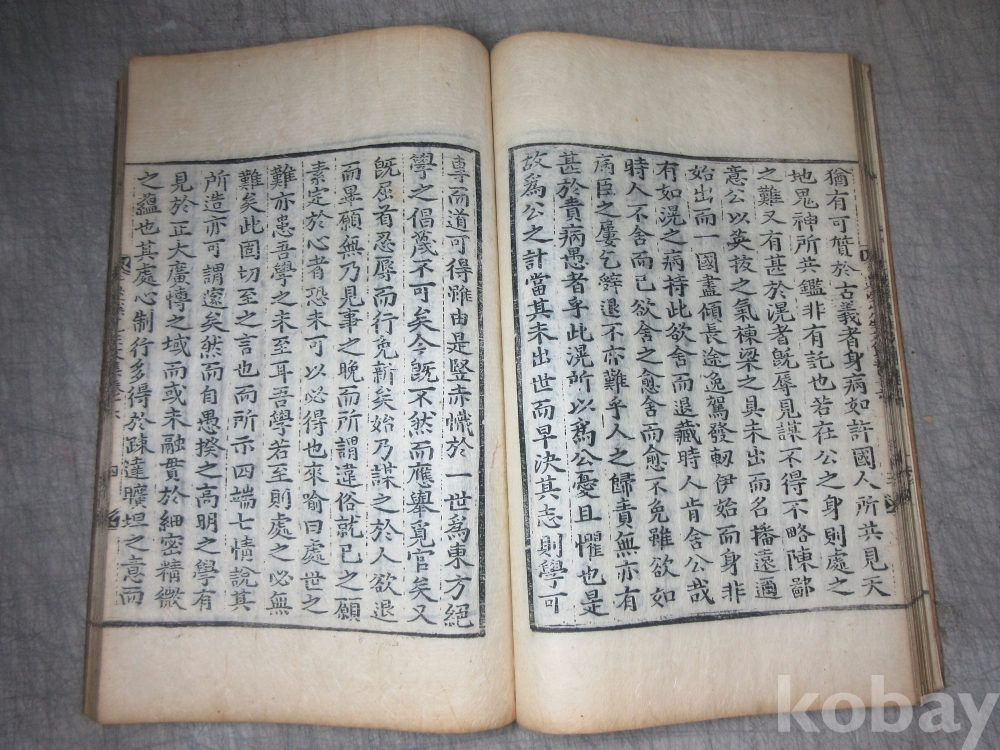 猶有可質於古義者身病如許國人所共見天
地鬼神所共鑑非有託也若在公之身則處之
之難又有甚於滉者旣辱見謀不得不略陳鄙
意公以英拔之氣棟梁之具未出而名播遠邇
始出而一國盡傾長途逸駕發軔伊始而身非
有如滉之病持此欲舍而退藏時人肯舍公哉
時人不舍而已欲舍之愈舍而愈不免雖欲如
病臣之屢乞辭退不亦難乎人之歸責無亦有
甚於責病愚者乎此滉所以爲公憂且懼也是
故爲公之計當其未出世而早決其志則學可
專而道可得雖由是竪赤幟於一世爲東方絕
學之倡蔑不可矣今旣不然而應擧覓官矣又
旣屈首忍辱而行免新矣始乃謀之於人欲退
而畢願無乃見事之晩而所謂違俗就已之願
素定於心者恐未可以必得也來喩曰處世之
難亦患吾學之未至耳吾學若至則處之必無
難矣此固切至之言也而所示四端七情說其
所造亦可謂邃矣然而自愚揆之高明之學有
見於正大廣博之域而或未融貫於細密精微
之蘊也其處心制行多得於疎達曠坦之意而
kobay